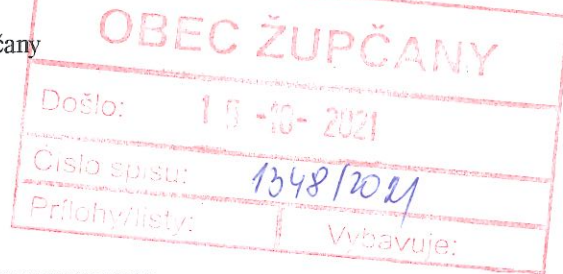 čany
OBEC ŽUPČANY
Došlo: -10- 2021
Číslo spisu: 1348/2021
Prílohy/listy: Vybavuje: